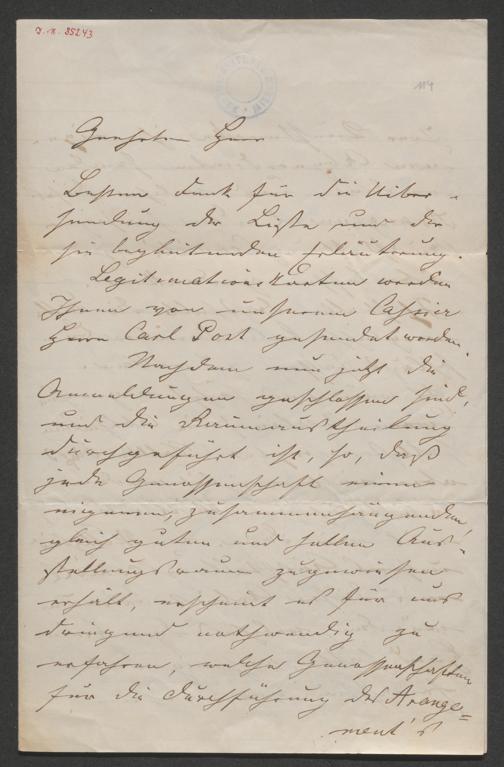 J. N. 85243
114
Geehrter Herr
Besten Dank für die Uiber-
sendung der Liste und der
sie begleitenden Erläuterung.
Legitimationskarten werden
Ihnen von unserem Cassier
Herrn Carl Post gesendet werden.
Nachdem nun jetzt die
Anmeldungen geschlossen sind,
und die Raumaustheilung
durchgeführt ist, so, daß
jede Genossenschaft einen
eigenen, zusammenhängenden,
gleich guten und hellen Aus-
stellungsraum zugewiesen
erhält, erscheint es für uns
dringend nothwendig zu
erfahren, welche Genossenschaften
für die Durchführung des Arange=
ment's